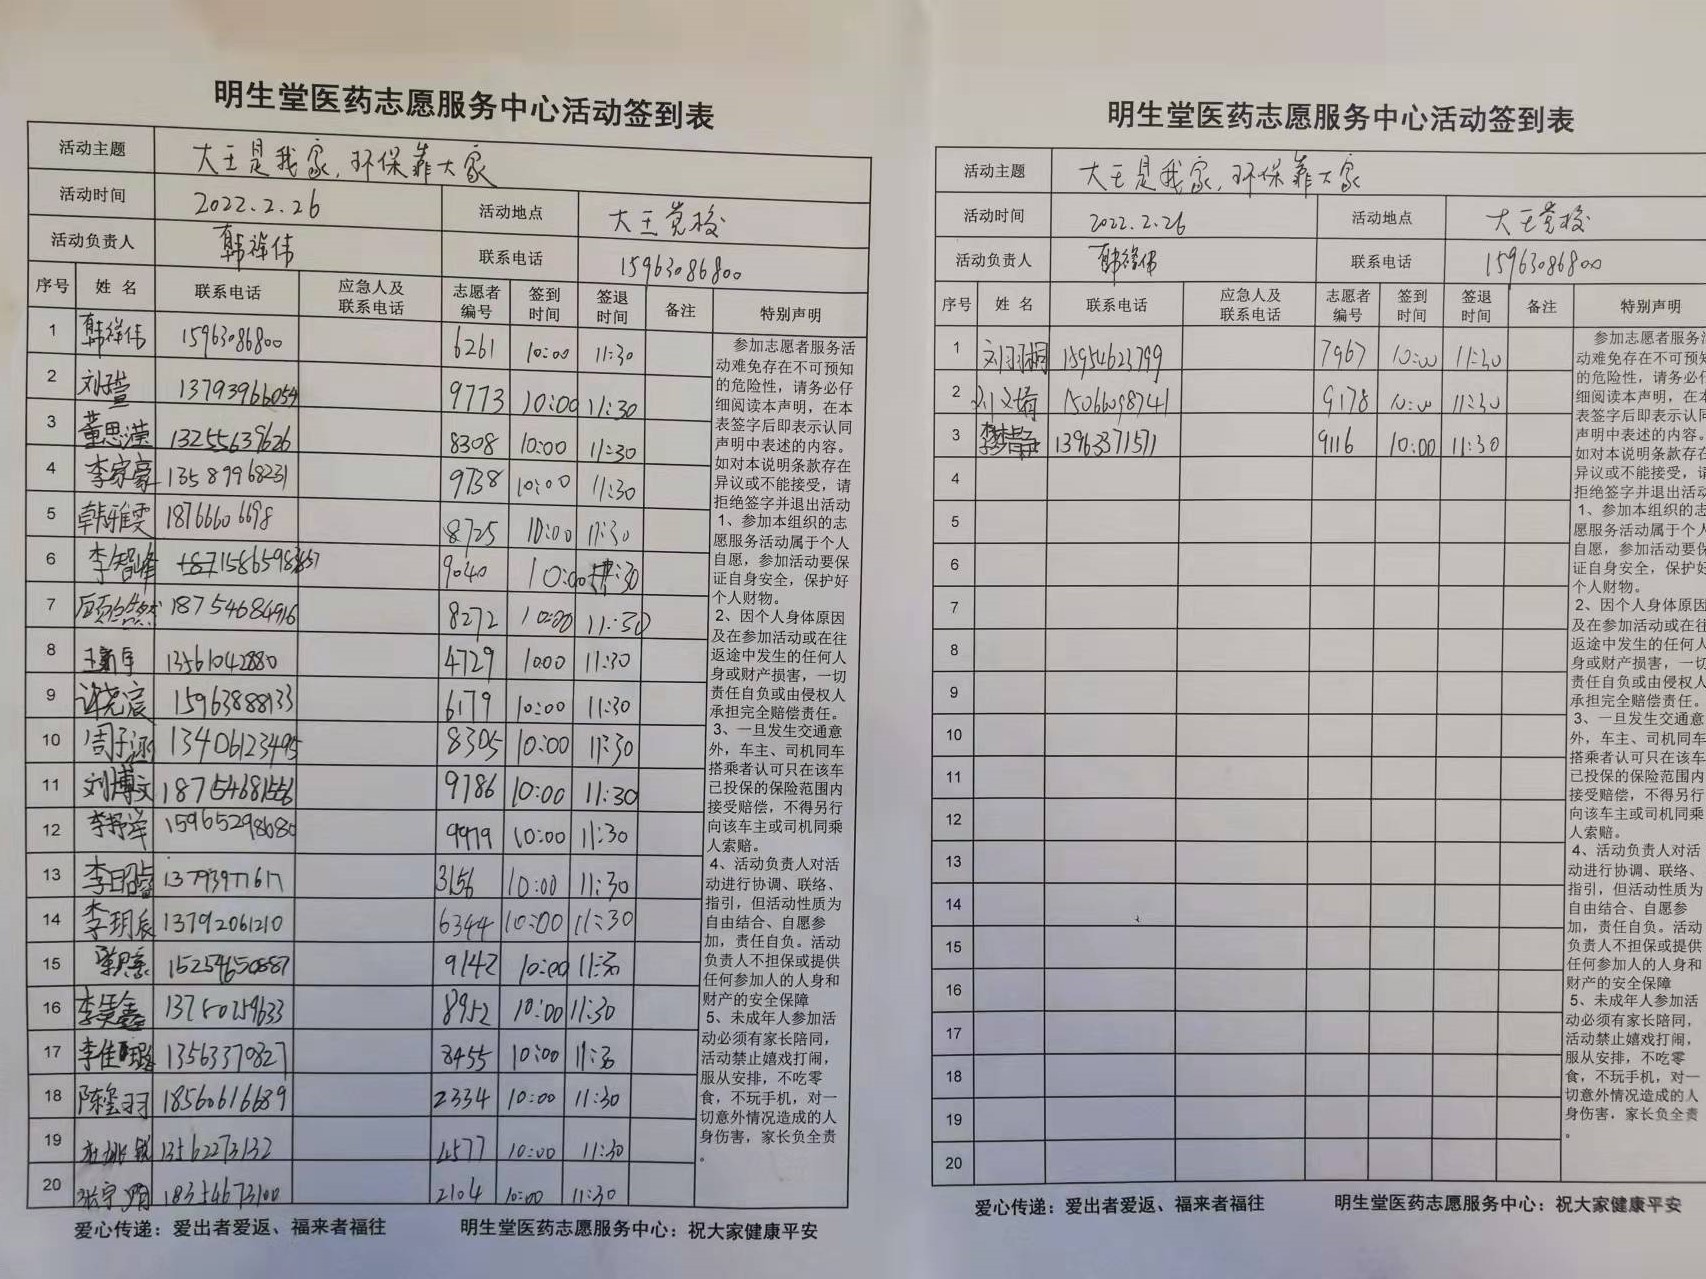 明生堂医药志愿服务中心活动签到表
活动主题 大王是我家,环保靠大家
活动时间 2022.2.26 活动地点 大王党校
活动负责人 韩祥伟 联系电话 15963086800
序号 姓名 联系电话 应急人及联系电话 志愿者编号 签到时间 签退时间 备注 特别声明
1 韩祥伟 15963086800 6261 10:00 11:30
2 刘子萱 13793966054 9773 10:00 11:30
3 董思滢 13255639626 8308 10:00 11:30
4 李家豪 13589968231 9738 10:00 11:30
5 韩雅雯 18766606698 8725 10:00 11:30
6 李智峰 9040 10:00 11:30
7 18754684916 8272 10:00 11:30
8 13561042880 4729 10:00 11:30
9 许尧宸 15963888133 6179 10:00 11:30
10 周子涵 13406123495 8305 10:00 11:30
11 刘博文 9786 10:00 11:30
12 15965298680 9979 10:00 11:30
13 13793971617 3156 10:00 11:30
14 李玥辰 13792061210 6344 10:00 11:30
15 15254650887 9142 10:00 11:30
16 8952 10:00 11:30
17 李佳璐 13563370827 8455 10:00 11:30
18 18560616689 2334 10:00 11:30
19 13562273132 4577 10:00 11:30
20 18354673100 2104 10:00 11:30
参加志愿者服务活
动难免存在不可预知
的危险性，请务必仔
细阅读本声明，在本
表签字后即表示认同
声明中表述的内容。
如对本说明条款存在
异议或不能接受，请
拒绝签字并退出活动
1、参加本组织的志
愿服务活动属于个人
自愿，参加活动要保
证自身安全，保护好
个人财物。
2、因个人身体原因
及在参加活动或在往
返途中发生的任何人
身或财产损害，一切
责任自负或由侵权人
承担完全赔偿责任。
3、一旦发生交通意
外，车主、司机同车
搭乘者认可只在该车
已投保的保险范围内
接受赔偿，不得另行
向该车主或司机同乘
人索赔。
4、活动负责人对活
动进行协调、联络、
指引，但活动性质为
自由结合、自愿参
加，责任自负。活动
负责人不担保或提供
任何参加人的人身和
财产的安全保障
5、未成年人参加活
动必须有家长陪同，
活动禁止嬉戏打闹，
服从安排，不吃零
食，不玩手机，对一
切意外情况造成的人
身伤害，家长负全责
。
爱心传递：爱出者爱返、福来者福往 明生堂医药志愿服务中心：祝大家健康平安
明生堂医药志愿服务中心活动签到表
活动主题 大王是我家,环保靠大家
活动时间 2022.2.26 活动地点 大王党校
活动负责人 韩祥伟 联系电话 15963086800
序号 姓名 联系电话 应急人及联系电话 志愿者编号 签到时间 签退时间 备注 特别声明
1 刘羽桐 15954623799 7967 10:00 11:30
2 15066098741 9178 10:00 11:30
3 13963371571 9116 10:00 11:30
4
5
6
7
8
9
10
11
12
13
14
15
16
17
18
19
20
参加志愿者服务
动难免存在不可预
的危险性，请务必
细阅读本声明，在
表签字后即表示认同
声明中表述的内容。
如对本说明条款存
异议或不能接受，
拒绝签字并退出活
1、参加本组织的
愿服务活动属于个人
自愿，参加活动要
证自身安全，保护好
个人财物。
2、因个人身体原
及在参加活动或在往
返途中发生的任何人
身或财产损害，一切
责任自负或由侵权人
承担完全赔偿责任。
3、一旦发生交通意
外，车主、司机同车
搭乘者认可只在该车
已投保的保险范围内
接受赔偿，不得另行
向该车主或司机同乘
人索赔。
4、活动负责人对活
动进行协调、联络、
指引，但活动性质为
自由结合、自愿参
加，责任自负。活动
负责人不担保或提供
任何参加人的人身和
财产的安全保障
5、未成年人参加活
动必须有家长陪同，
活动禁止嬉戏打闹，
服从安排，不吃零
食，不玩手机，对一
切意外情况造成的人
身伤害，家长负全责
。
爱心传递：爱出者爱返、福来者福往 明生堂医药志愿服务中心：祝大家健康平安